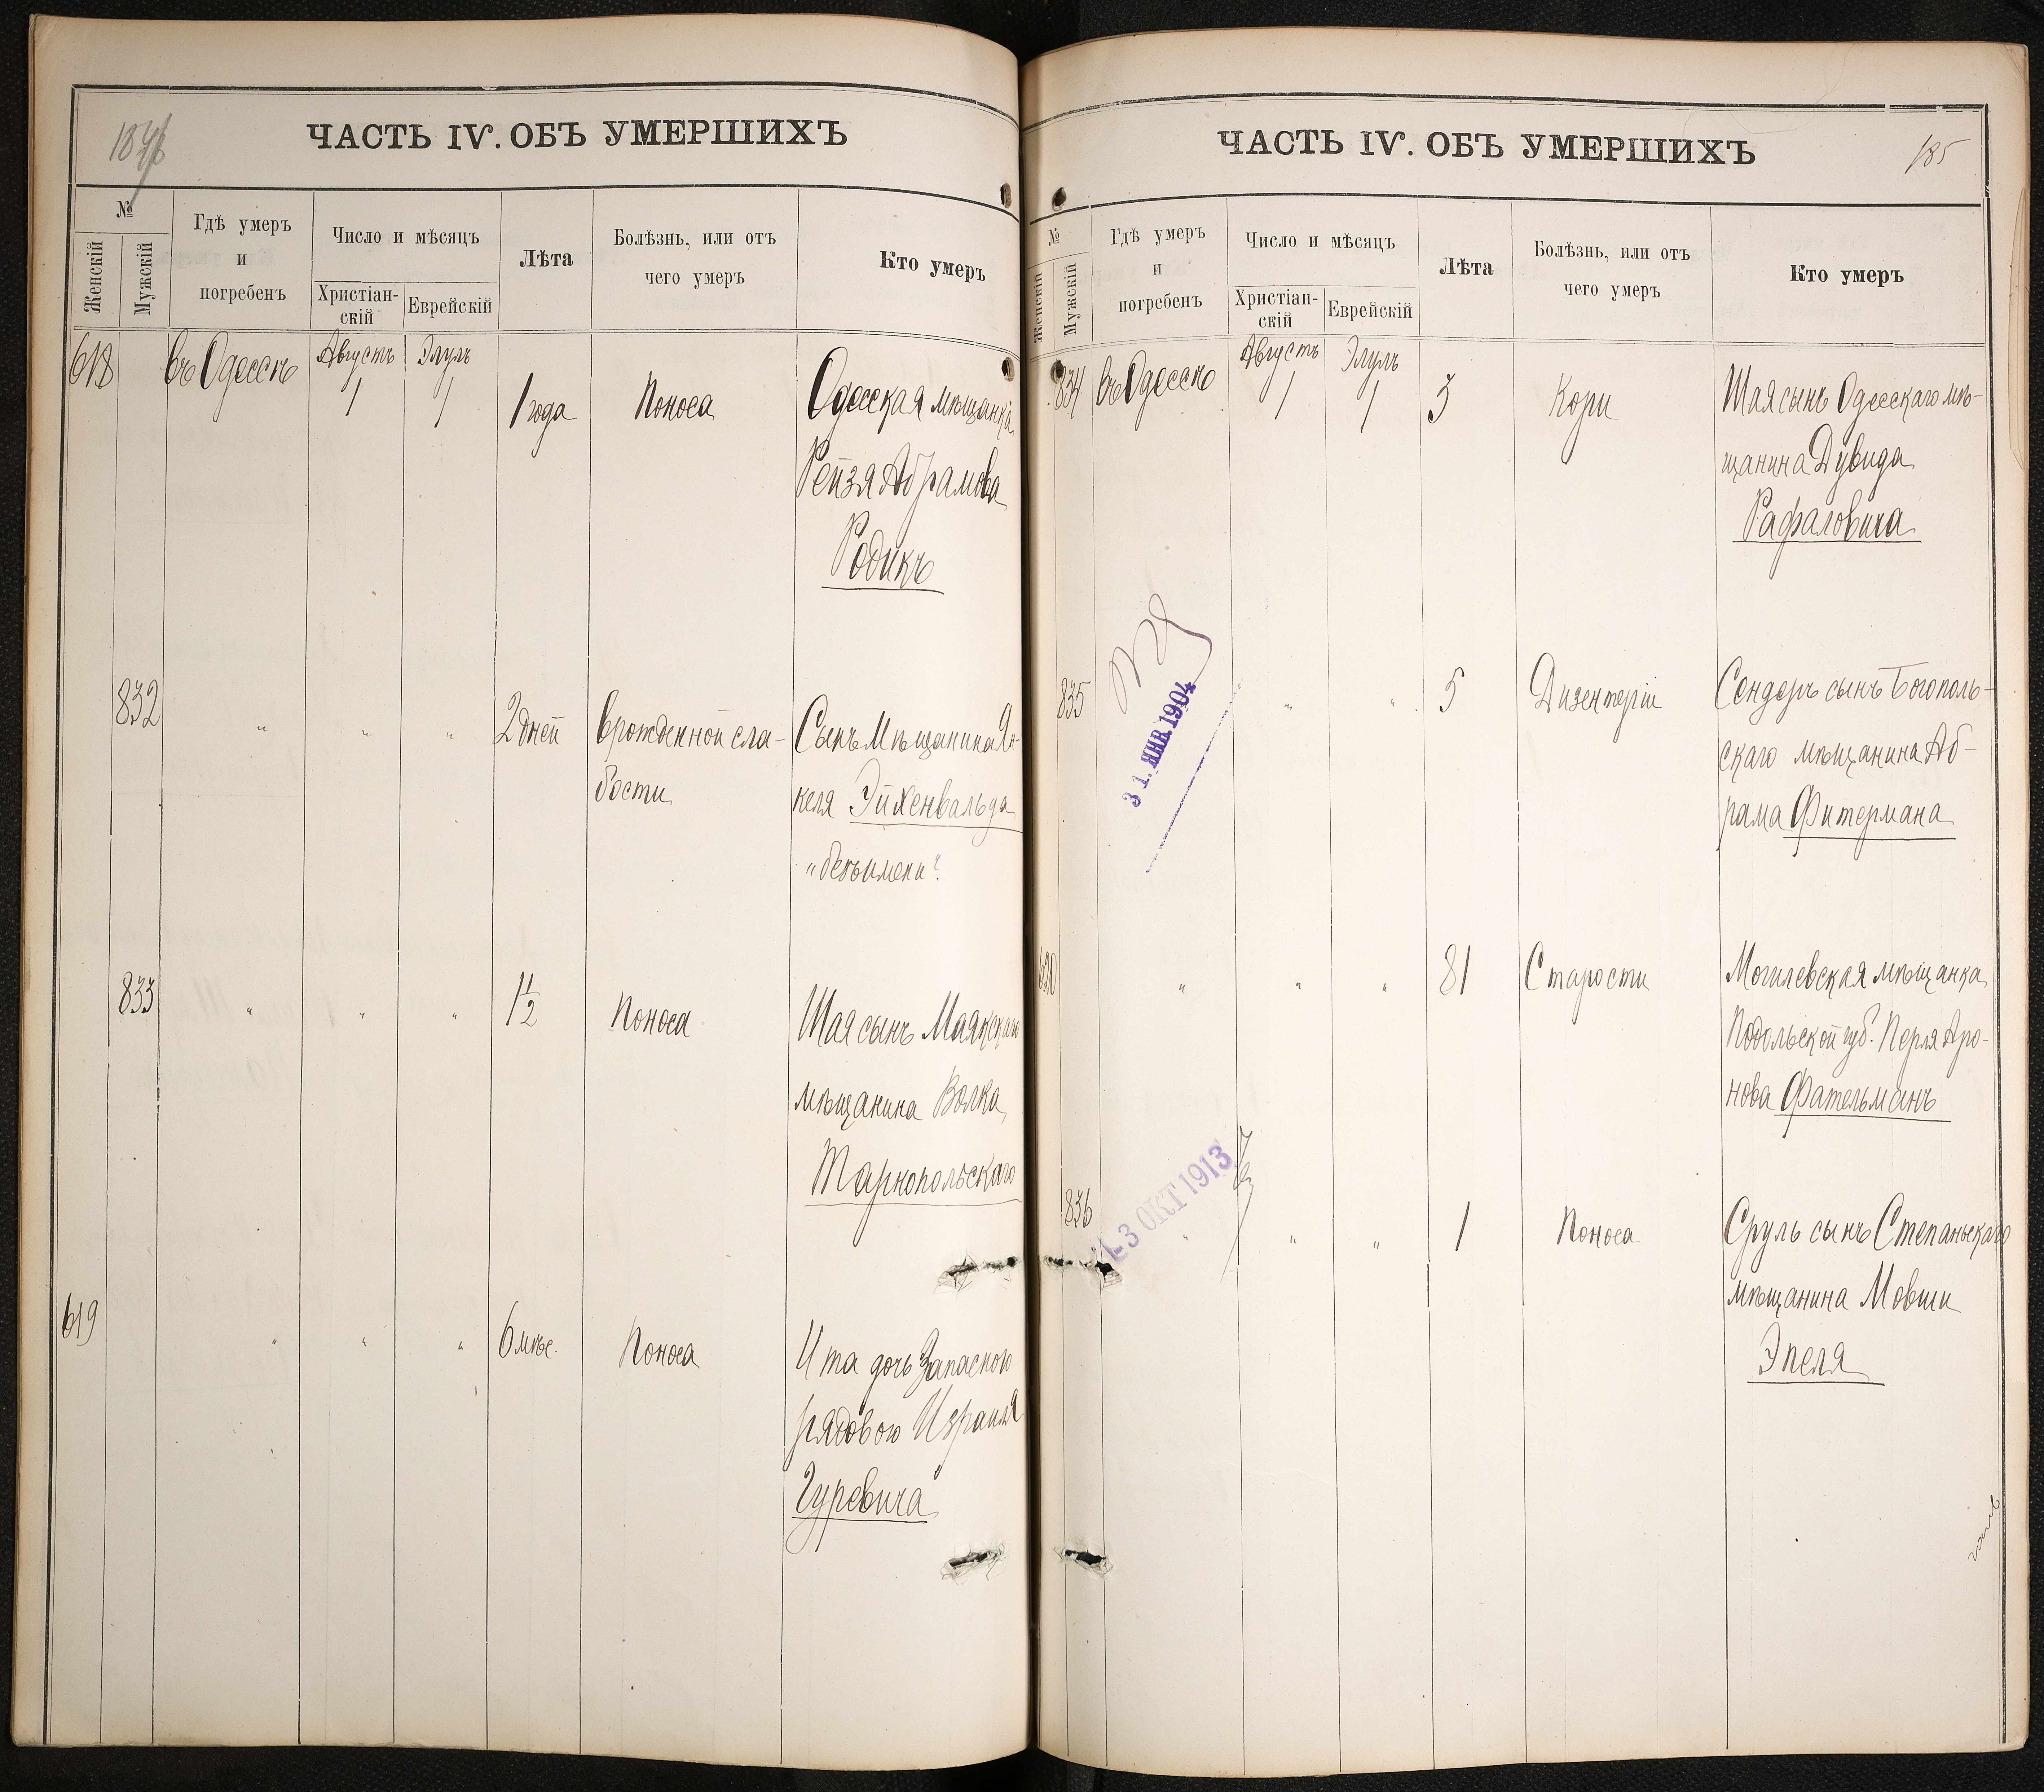 ЧАСТЬ IV. ОБЪ УМЕРШИХЪ
№
Женскій
Мужскій
Гдѣ умеръ
и
погребенъ
Число и мѣсяцъ
Христіан-
скій
Еврейскій
Лѣта
Болѣзнь, или отъ
чего умеръ
Кто умеръ
618 въ Одессѣ Августъ Элулъ
1 1 1 года Поноса Одесская мѣщанка
Рейзя Абрамова
Родикъ
832 " " " 2 дней Врожденной сла- Сынъ Мѣщанина Ян-
бости келя Эйхенвальда
"безъимени"
833 " " " 1 1/2 Поноса Шая сынъ Маякскаго
мѣщанина Волка
Тарнопольскаго
619 " " " 6 мѣс. Поноса Ита дочь Запасного
рядового Израиля
Гуревича
ЧАСТЬ IV. ОБЪ УМЕРШИХЪ
185
№
Женскій
Мужскій
Гдѣ умеръ
и
погребенъ
Число и мѣсяцъ
Христіан-
скій
Еврейскій
Лѣта
Болѣзнь, или отъ
чего умеръ
Кто умеръ
834 въ Одессѣ Августъ Элулъ
1 1 3 Кори Шая сынъ Одесскаго мѣ-
щанина Дувида
Рафаловича
31. ЯНВ. 1904
835 " " " 5 Дизентеріи Сендеръ сынъ Богополь-
скаго мѣщанина Аб-
рама Фитермана
620 " " " 81 Старости Могилевская мѣщанка
Подольской губ. Перля Аро-
нова Фательманъ
-3 ОКТ 1913
836 " " " 1 Поноса Сруль сынъ Степаньскаго
мѣщанина Мовши
Эпеля